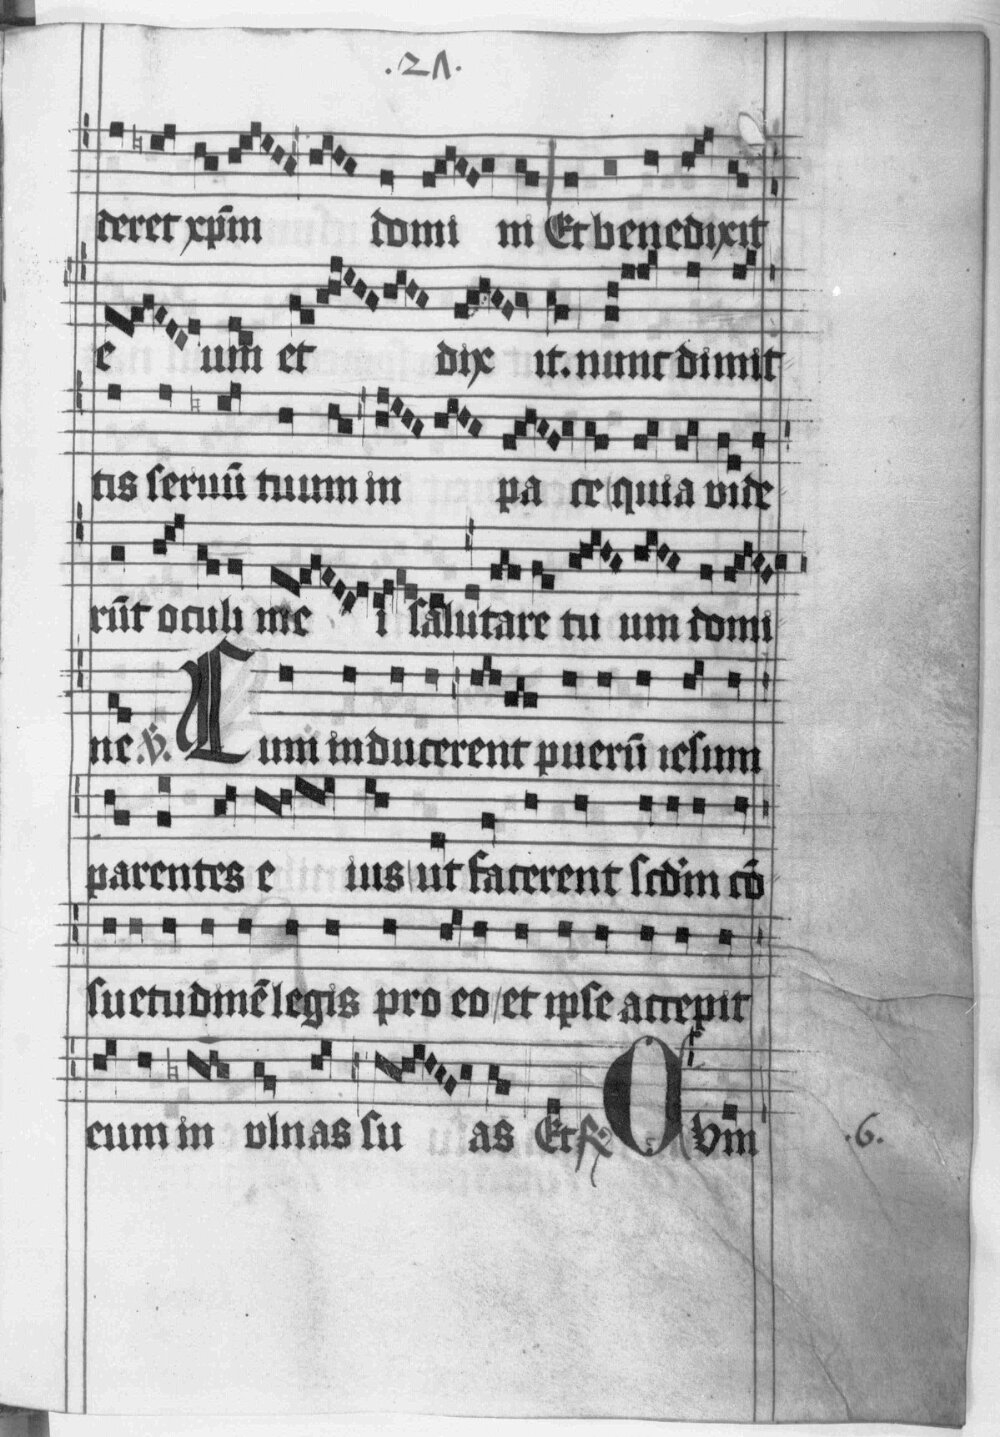 .2Λ.
ceret xp̄m domi ni Et benedixit
e um et dix it. nunc dimit
tis seruū tuum in pa ce quia vide
rūt oculi me i salutare tu um domi
ne. ℣. Cum inducerent puerū iesum
parentes e ius ut facerent scd̄m cō
suetudinē legis pro eo et ipse accepit
eum in vlnas su as Et ℟ O Vm
.6.